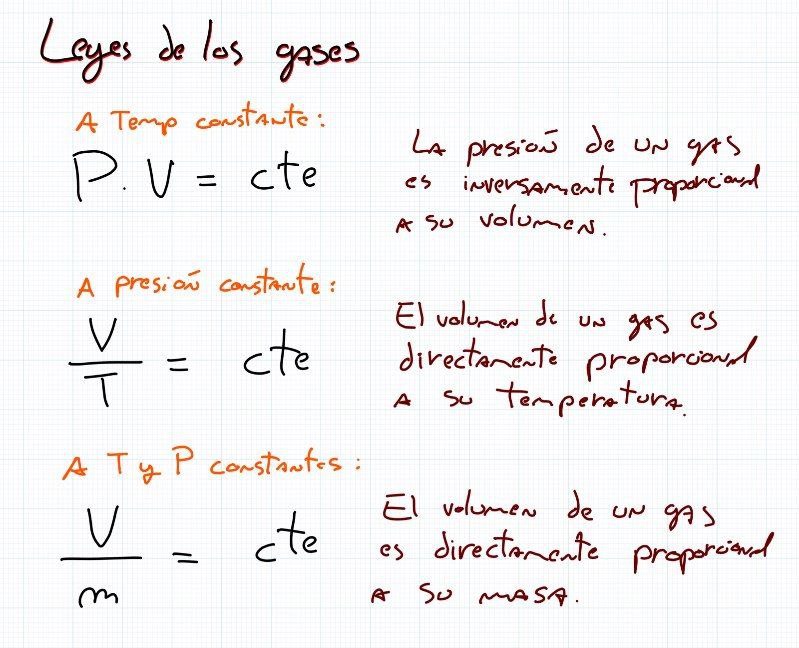 Leyes de los gases
A Temp constante:
P. V = cte
La presión de un gas
es inversamente proporcional
a su volumen.
A presión constante:
V
T
= cte
El volumen de un gas es
directamente proporcional
a su temperatura.
A T y P constantes:
V
m
= cte
El volumen de un gas
es directamente proporcional
a su masa.